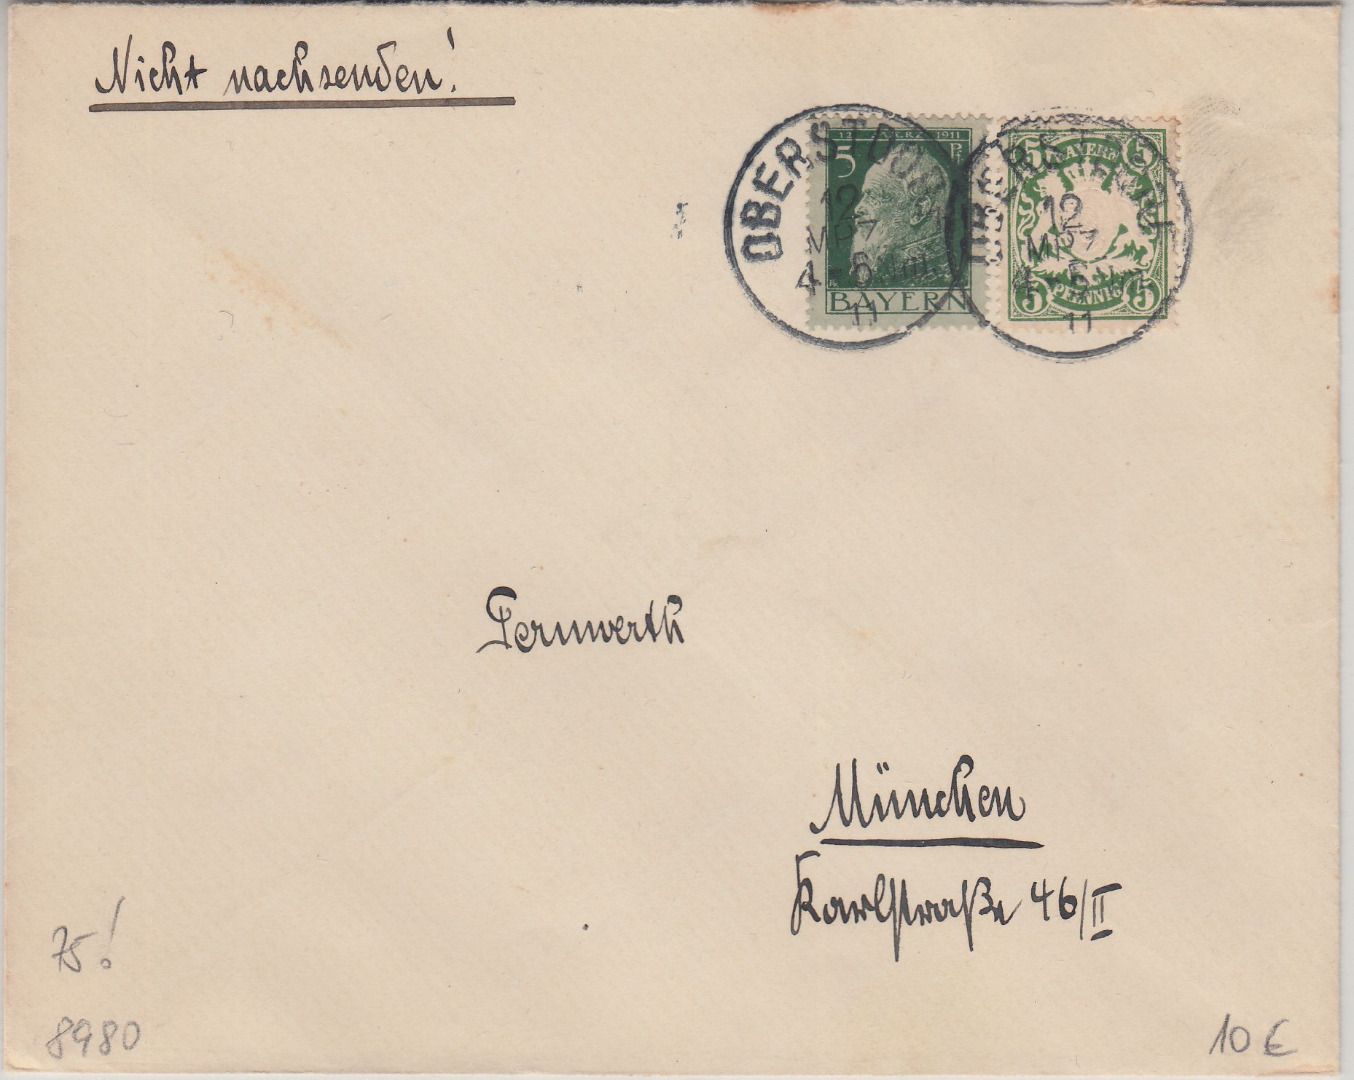 Nicht nachsenden!
OBERSTDORF
12 MRZ
4-5 Nm.
11
12. MÄRZ 1911
5 Pf
BAYERN
OBERSTDORF
12 MRZ
4-5 Nm.
11
5 BAYERN 5
5 PFENNIG 5
Pernwerth
München
Karlstraße 46/II
75!
8980
10 €